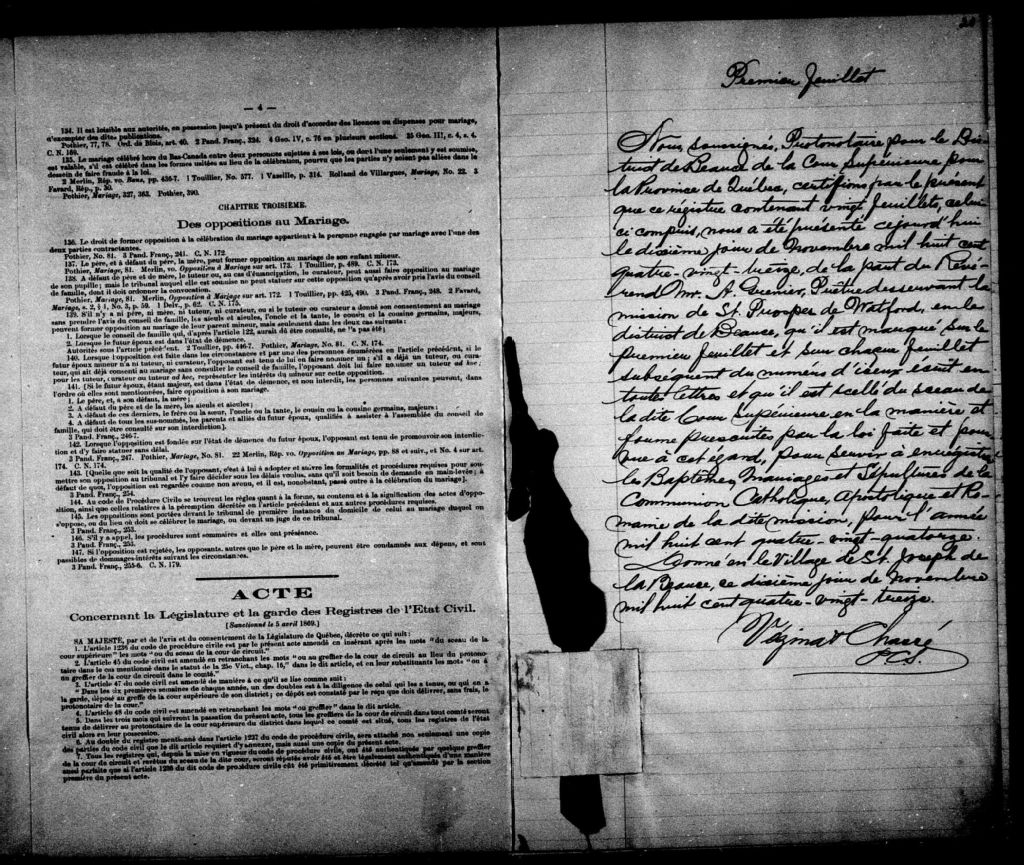 — 4 —
134. Il est loisible aux autorités, en possession jusqu'à présent du droit d'accorder des licences ou dispenses pour mariage,
d'exempter des dites publications.
Pothier, 77, 78. Ord. de Blois, art. 40. 2 Pand. Franç., 224. 4 Geo. IV, c. 76 en plusieurs sections. 35 Geo. III, c. 4, s. 4.
C. N. 169.
135. Le mariage célébré hors du Bas-Canada entre deux personnes sujettes à ses lois, ou dont l'une seulement y est soumise,
est valable, s'il est célébré dans les formes usitées au lieu de la célébration, pourvu que les parties n'y soient pas allées dans le
dessein de faire fraude à la loi.
2 Merlin, Rép. vo. Bans, pp. 436-7. 1 Touillier, No. 577. 1 Vazeille, p. 314. Rolland de Villargues, Mariage, No. 22. 3
Favard, Rép., p. 30.
Pothier, Mariage, 327, 363. Pothier, 390.
CHAPITRE TROISIÈME.
Des oppositions au Mariage.
136. Le droit de former opposition à la célébration du mariage appartient à la personne engagée par mariage avec l'une des
deux parties contractantes.
Pothier, No. 81. 3 Pand. Franç., 241. C. N. 172.
137. Le père, et à défaut du père, la mère, peut former opposition au mariage de son enfant mineur.
Pothier, Mariage, 81. Merlin, vo. Opposition à Mariage sur art. 173. 1 Touillier, p. 489. C. N. 173.
138. A défaut de père et de mère, le tuteur, ou, au cas d'émancipation, le curateur, peut aussi faire opposition au mariage
de son pupille; mais le tribunal auquel elle est soumise ne peut statuer sur cette opposition qu'après avoir pris l'avis du conseil
de famille, dont il doit ordonner la convocation.
Pothier, Mariage, 81. Merlin, Opposition à Mariage sur art. 172. 1 Touillier, pp. 425, 490. 3 Pand. Franç., 248. 2 Favard,
Mariage, s. 2, § 1, No. 3, p. 59. 1 Delv., p. 62. C. N. 175.
139. S'il n'y a ni père, ni mère, ni tuteur, ni curateur, ou si le tuteur ou curateur a donné son consentement au mariage
sans prendre l'avis du conseil de famille, les aïeuls et aïeules, l'oncle et la tante, le cousin et la cousine germains, majeurs,
peuvent former opposition au mariage de leur parent mineur, mais seulement dans les deux cas suivants:
1. Lorsque le conseil de famille qui, d'après l'article 122, aurait dû être consulté, ne l'a pas été;
2. Lorsque le futur époux est dans l'état de démence.
Autorités sous l'article précédent. 2 Touillier, pp. 446-7. Pothier, Mariage, No. 81. C. N. 174.
140. Lorsque l'opposition est faite dans les circonstances et par une des personnes énumérées en l'article précédent, si le
futur époux mineur n'a ni tuteur, ni curateur, l'opposant est tenu de lui en faire nommer un; s'il a déjà un tuteur, ou cura-
teur, qui ait déjà consenti au mariage sans consulter le conseil de famille, l'opposant doit lui faire nommer un tuteur ad hoc;
pour les tuteur, curateur ou tuteur ad hoc, représenter les intérêts du mineur sur cette opposition.
141. [Si le futur époux, étant majeur, est dans l'état de démence, et non interdit, les personnes suivantes peuvent, dans
l'ordre où elles sont mentionnées, faire opposition à son mariage.
1. Le père, et, à son défaut, la mère;
2. A défaut du père et de la mère, les aïeuls et aïeules;
3. A défaut de ces derniers, le frère ou la sœur, l'oncle ou la tante, le cousin ou la cousine germains, majeurs;
4. A défaut de tous les sus-nommés, les parents et alliés du futur époux, qualifiés à assister à l'assemblée du conseil de
famille, qui doit être consulté sur son interdiction].
3 Pand. Franç., 246-7.
142. Lorsque l'opposition est fondée sur l'état de démence du futur époux, l'opposant est tenu de promouvoir son interdic-
tion et d'y faire statuer sans délai.
3 Pand. Franç., 247. Pothier, Mariage, No. 81. 22 Merlin, Rép. vo. Opposition au Mariage, pp. 88 et suiv., et No. 4 sur art.
174. C. N. 174.
143. [Quelle que soit la qualité de l'opposant, c'est à lui à adopter et suivre les formalités et procédures requises pour sou-
mettre son opposition au tribunal et l'y faire décider sous les délais voulus, sans qu'il soit besoin de demande en main-levée; à
défaut de quoi, l'opposition est regardée comme non avenue, et il est, nonobstant, passé outre à la célébration du mariage].
3 Pand. Franç., 254.
144. Au code de Procédure Civile se trouvent les règles quant à la forme, au contenu et à la signification des actes d'oppo-
sition, ainsi que celles relatives à la péremption décrétée en l'article précédent et aux autres procédures requises.
145. Les oppositions sont portées devant le tribunal de première instance du domicile de celui au mariage duquel on
s'oppose, ou du lieu où doit se célébrer le mariage, ou devant un juge de ce tribunal.
3 Pand. Franç., 253.
146. S'il y a appel, les procédures sont sommaires et elles ont présence.
3 Pand. Franç., 253.
147. Si l'opposition est rejetée, les opposants, autres que le père et la mère, peuvent être condamnés aux dépens, et sont
passibles de dommages-intérêts suivant les circonstances.
3 Pand. Franç., 255-6. C. N. 179.
ACTE
Concernant la Législature et la garde des Registres de l'Etat Civil.
[Sanctionné le 5 avril 1869.]
SA MAJESTÉ, par et de l'avis et du consentement de la Législature de Québec, décrète ce qui suit:
1. L'article 1236 du code de procédure civile est par le présent acte amendé en insérant après les mots "du sceau de la
cour supérieure" les mots "ou du sceau de la cour de circuit."
2. L'article 45 du code civil est amendé en retranchant les mots "ou au greffier de la cour de circuit au lieu du protono-
taire dans le cas mentionné dans le statut de la 25e Vict., chap. 16," dans le dit article, et en leur substituant les mots "ou à
un greffier de la cour de circuit dans le comté."
3. L'article 47 du code civil est amendé de manière à ce qu'il se lise comme suit:
"Dans les six premières semaines de chaque année, un des doubles est à la diligence de celui qui les a tenus, ou qui en a
la garde, déposé au greffe de la cour supérieure de son district; ce dépôt est constaté par le reçu que doit délivrer, sans frais, le
protonotaire de la cour."
4. L'article 48 du code civil est amendé en retranchant les mots "ou greffier" dans le dit article.
5. Dans les trois mois qui suivront la passation du présent acte, tous les greffiers de la cour de circuit dans tout comté seront
tenus de délivrer au protonotaire de la cour supérieure du district dans lequel ce comté est situé, tous les registres de l'état
civil alors en leur possession.
6. Au double du registre mentionné dans l'article 1237 du code de procédure civile, sera attaché non seulement une copie
des parties du code civil que le dit article requiert d'y annexer, mais aussi une copie du présent acte.
7. Tous les registres qui, depuis la mise en vigueur du code de procédure civile, ont été authentiqués par quelque greffier
de la cour de circuit et revêtus du sceau de la dite cour, seront réputés avoir été et être légalement authentiqués d'une manière
aussi parfaite que si l'article 1236 du dit code de procédure civile eût été primitivement décrété tel qu'amendé par la section
première du présent acte.
Premier feuillet
Nous soussignés, Protonotaire pour le Dis-
trict de Beauce de la Cour Supérieure pour
la Province de Québec, certifions par le présent
que ce régistre contenant vingt feuillets, celui-
ci compris, nous a été présenté cejourd'hui
le dixième jour de Novembre mil huit cent
quatre-vingt-treize, de la part du Révé-
rend Mr. A. Grenier, Prêtre desservant la
mission de St. Prosper de Watford, en le
district de Beauce, qu'il est marqué sur le
premier feuillet et sur chaque feuillet
subséquent du numéro d'iceux écrit en
toute lettres et qu'il est scellé du sceau de
la dite Cour Supérieure, en la manière et
forme prescrites par la loi faite et pour-
vue à cet égard, pour servir à enregistrer
les Baptêmes, Mariages et Sépultures de la
Communion Catholique, Apostolique et Ro-
maine de la dite mission, pour l'année
mil huit cent quatre-vingt-quatorze.
Donné en le Village de St. Joseph de
la Beauce, ce dixième jour de Novembre
mil huit cent quatre-vingt-treize.
Vézina & Chassé
P.C.S.